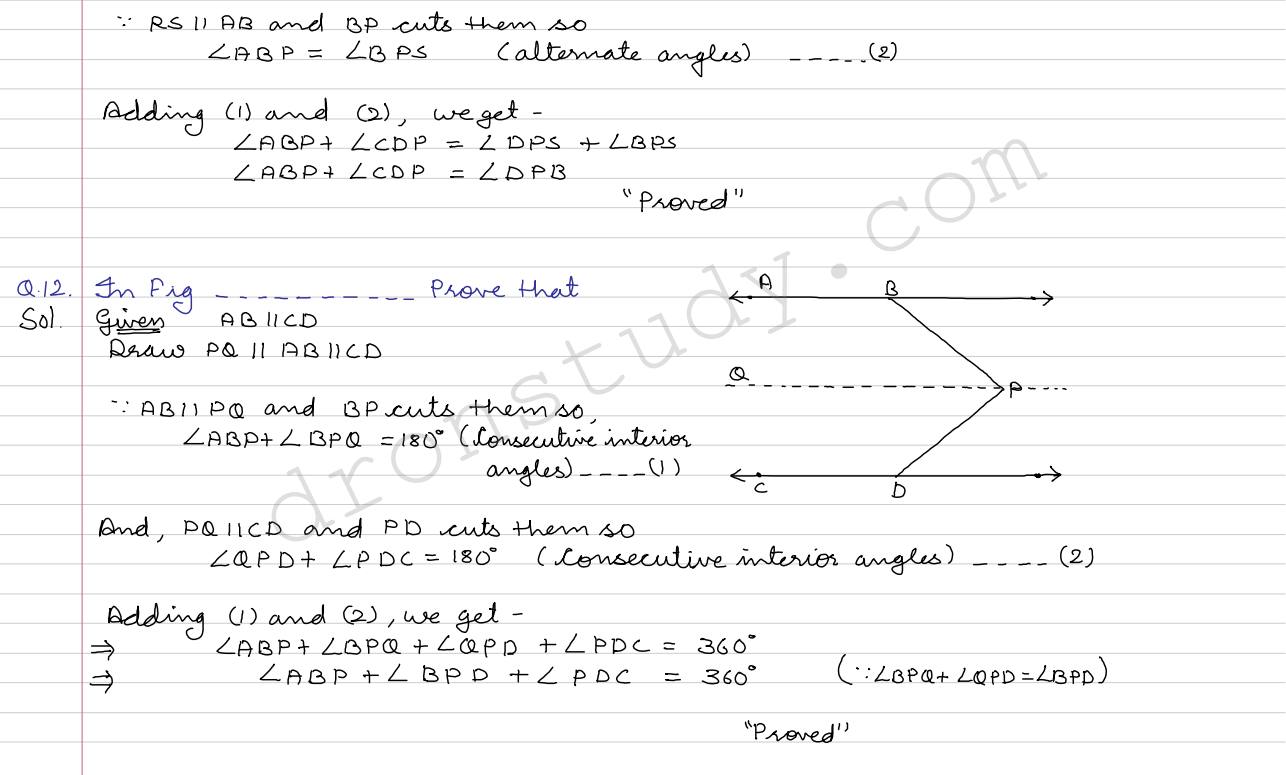 ∵ RS || AB and BP cuts them so
∠ABP = ∠BPS (alternate angles) -----(2)
Adding (1) and (2), we get -
∠ABP + ∠CDP = ∠DPS + ∠BPS
∠ABP + ∠CDP = ∠DPB
"Proved"
Q.12. In Fig ----------- Prove that
Sol. Given AB||CD
Draw PQ || AB||CD
∵ AB || PQ and BP cuts them so,
∠ABP + ∠BPQ = 180° (Consecutive interior
angles) ----(1)
A
B
Q
P
C
D
And, PQ||CD and PD cuts them so
∠QPD + ∠PDC = 180° (Consecutive interior angles) ----(2)
Adding (1) and (2), we get -
⇒ ∠ABP + ∠BPQ + ∠QPD + ∠PDC = 360°
⇒ ∠ABP + ∠BPD + ∠PDC = 360° (∵ ∠BPQ + ∠QPD = ∠BPD)
"Proved"
dronstudy.com